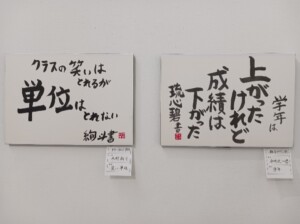 クラスの笑いは
とれるが
単位は
とれない
学年は
上がった
けれど
成績は
下がった